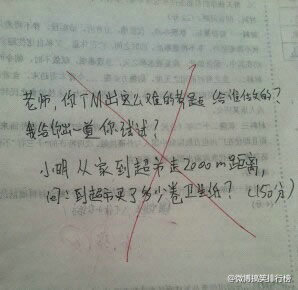 老师,你TM出这么难的考题 给谁做的?
我给你出一道你试试?
小明从家到超市走2000m距离,
问:到超市买了多少卷卫生纸? (150分)
@微博搞笑排行榜